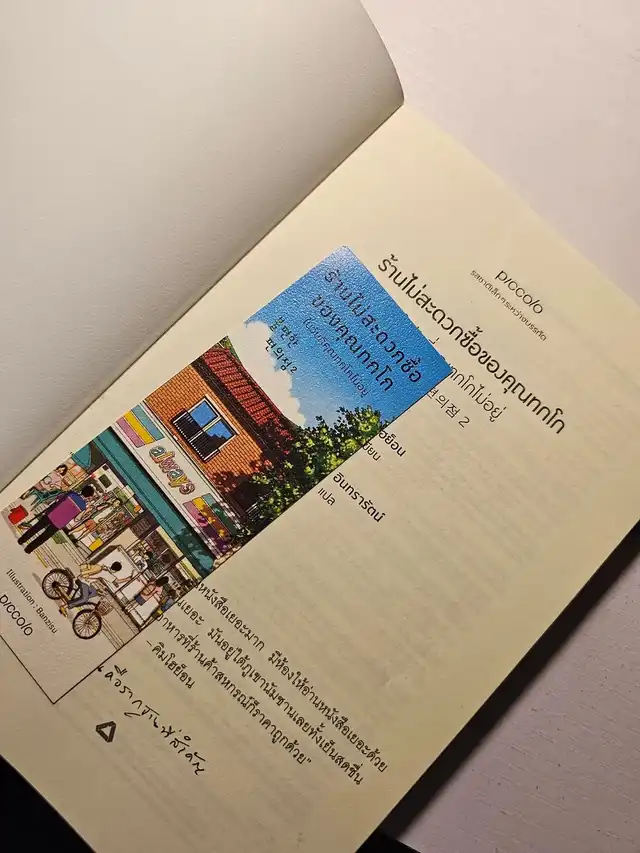 piccolo
รสชาติเล็กๆ ระหว่างบรรทัด
ร้านไม่สะดวกซื้อของคุณทกโก
ทกโกไม่อยู่
편의점 2
ฮย็อน
เขียน
อินทรารัตน์
แปล
ร้านไม่สะดวกซื้อ
ของคุณทกโก
(ในวันที่คุณทกโกไม่อยู่)
불편한
편의점 2
always
Illustration : Banzisu
piccolo
หนังสือเยอะมาก มีห้องให้อ่านหนังสือเยอะด้วย
เยอะ มันอยู่ใต้ภูเขานัมซานเลยทั้งเย็นสดชื่น
อาหารที่ร้านค้าสหกรณ์ก็ราคาถูกด้วย"
-คิมโฮย็อน